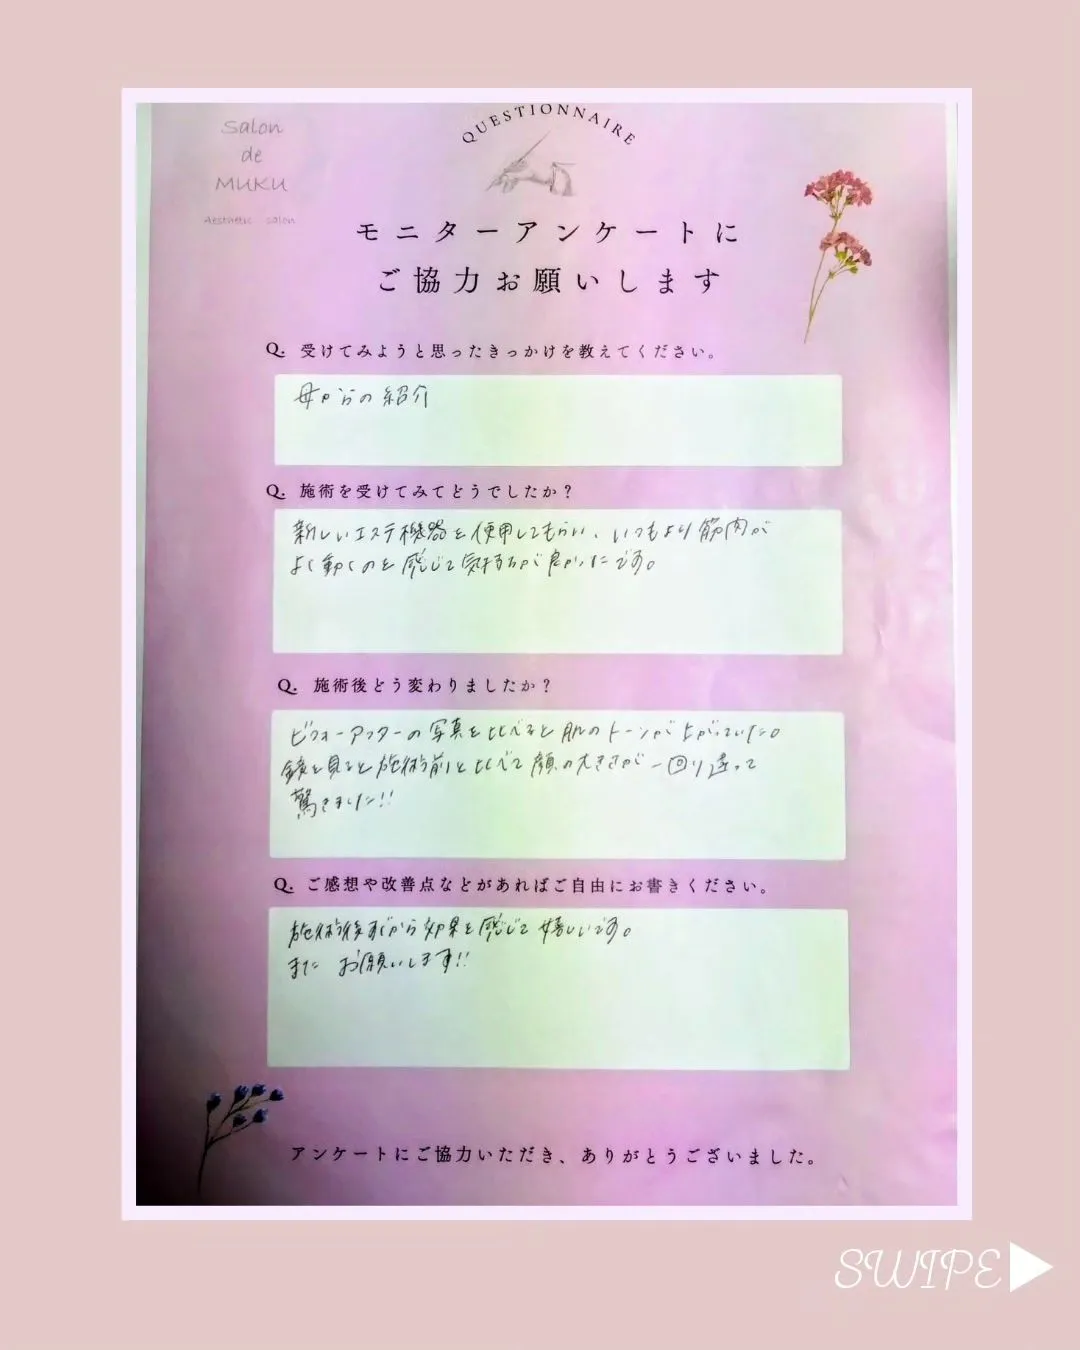 QUESTIONNAIRE
Salon
de
MUKU
Aesthetic salon
モニターアンケートに
ご協力お願いします
Q. 受けてみようと思ったきっかけを教えてください。
母からの紹介
Q. 施術を受けてみてどうでしたか？
新しいエステ機器を使用してもらい、いつもより筋肉が
よく動くのを感じて気持ちが良かったです。
Q. 施術後どう変わりましたか？
ビフォーアフターの写真を比べると肌のトーンが上がっていた。
鏡を見ると施術前と比べて顔の大きさが一回り違って
驚きました!!
Q. ご感想や改善点などがあればご自由にお書きください。
施術後すぐから効果を感じて嬉しいです。
また お願いします!!
アンケートにご協力いただき、ありがとうございました。
SWIPE